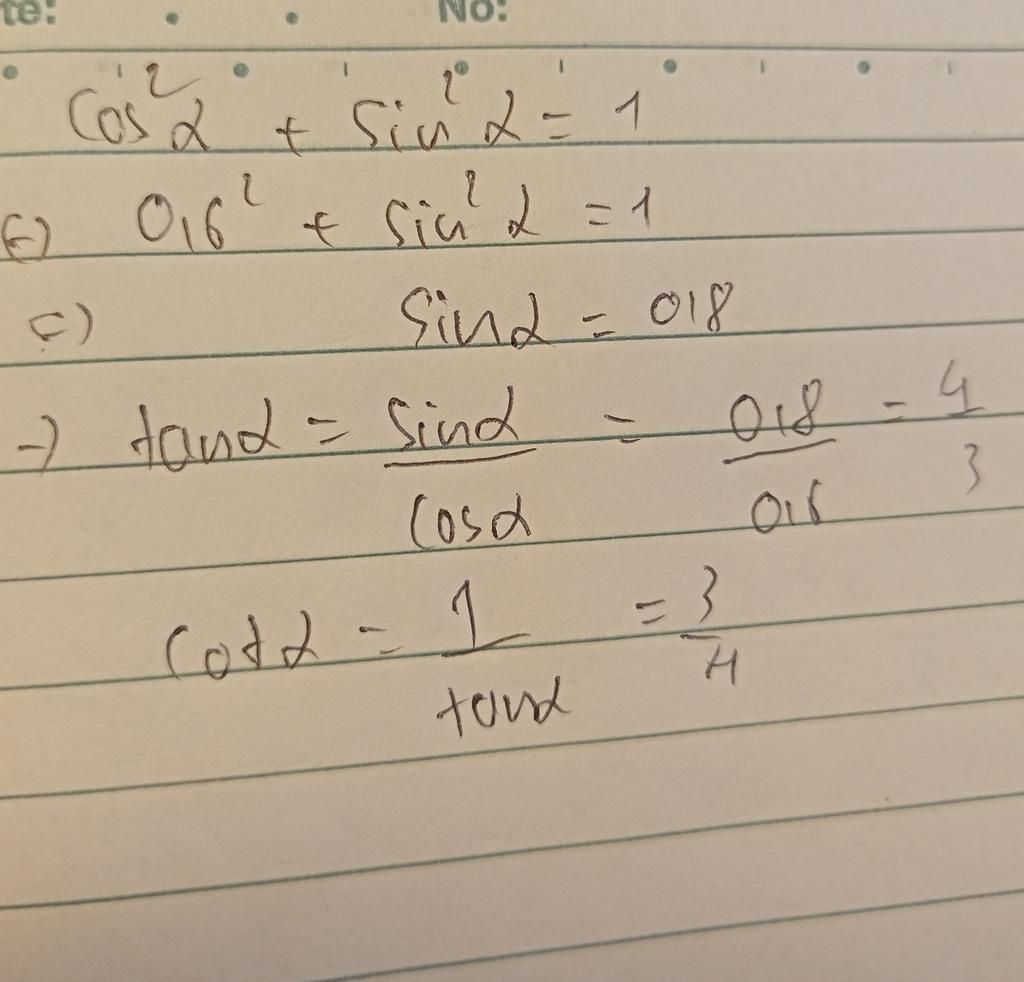 te: No:
cos²α + sin²α = 1
(=) 0,6² + sin²α = 1
=) sinα = 0,8
-) tanα = sinα/cosα = 0,8/0,6 = 4/3
cotα = 1/tanα = 3/4